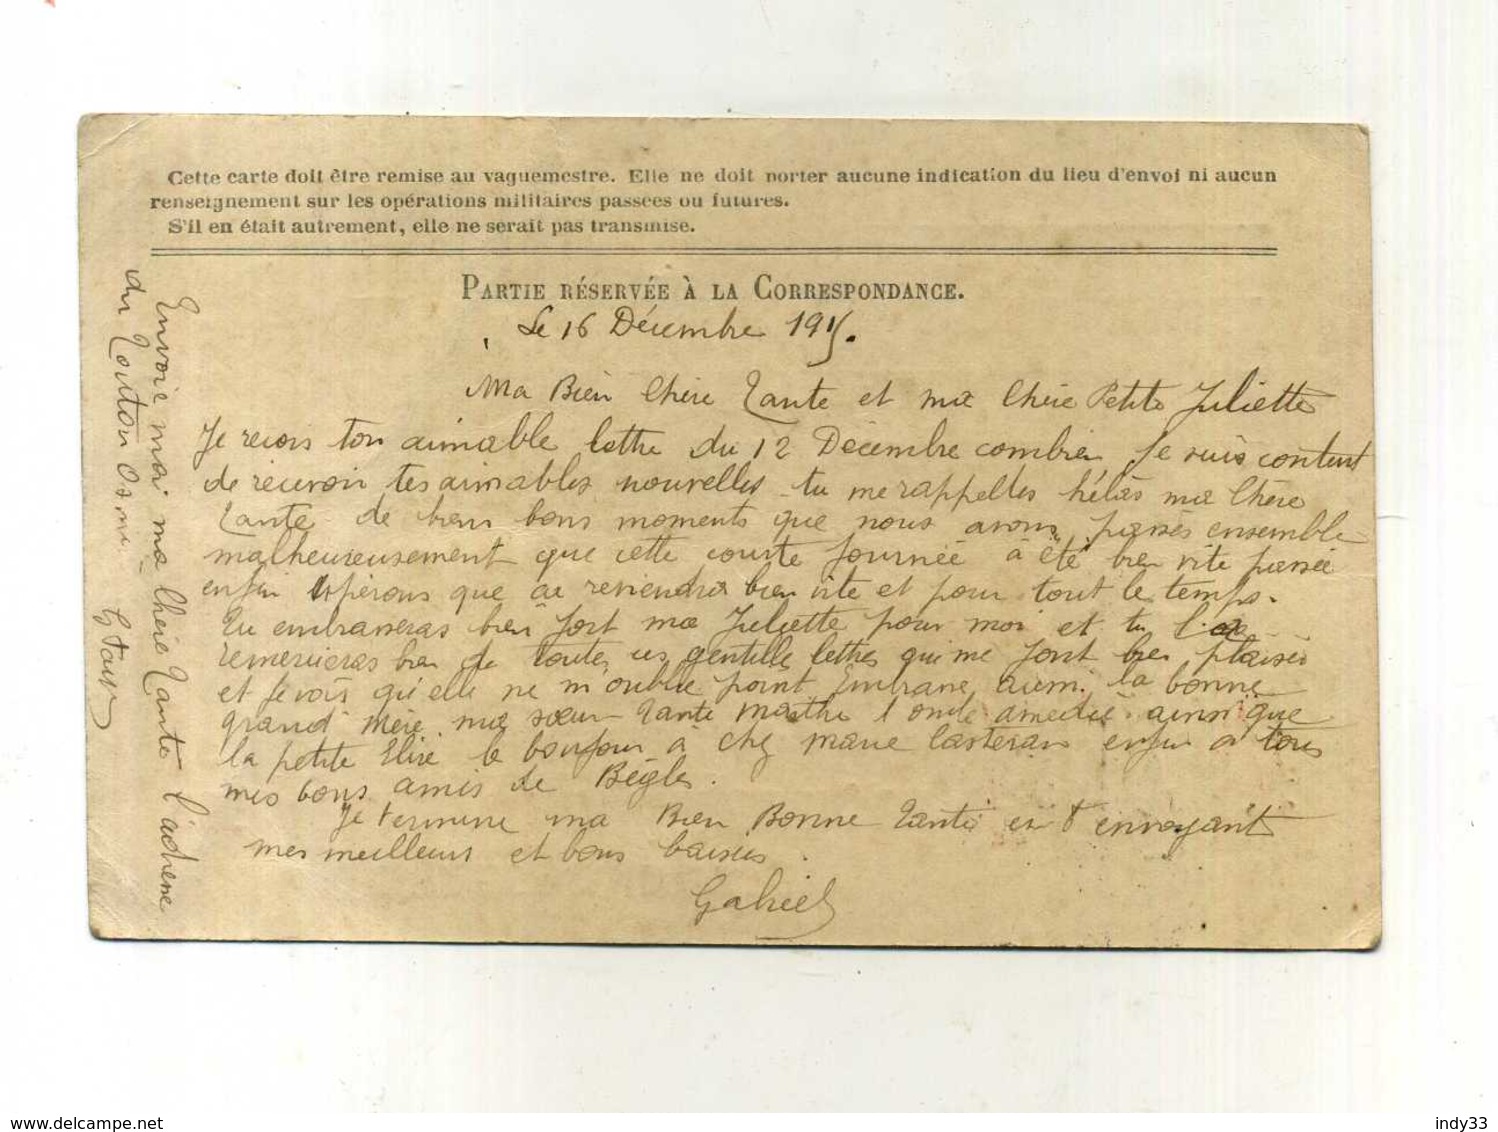 Cette carte doit être remise au vaguemestre. Elle ne doit porter aucune indication du lieu d'envoi ni aucun
renseignement sur les opérations militaires passées ou futures.
S'il en était autrement, elle ne serait pas transmise.
PARTIE RÉSERVÉE À LA CORRESPONDANCE.
Le 16 Décembre 1915.
Ma Bien Chère Tante et ma Chère Petite Juliette
Je recois ton aimable lettre du 12 Décembre combien Je suis content
de recevoir tes aimables nouvelles tu me rappelles hélas ma Chère
Tante de biens bons moments que nous avons passés ensemble
malheureusement que cette courte Journée à été bien vite passée
enfin espérons que ca reviendra bien vite et pour tout le temps.
Tu embrasseras bien fort ma Juliette pour moi et tu la
remercieras bien de toutes ces gentille lettres qui me font bien plaisir
et Je vois qu'elle ne m'oublie point Embrasse aussi la bonne
grand Mère ma sœur Tante Marthe l'oncle amédée ainsi que
la petite Elise le bonjour à chez Marie Casteran enfin à tous
mes bons amis de Bègles.
Je termine ma Bien Bonne Tante en t'envoyant
mes meilleurs et bons baisers.
Gabriel
Envoie moi ma Chère Tante l'adresse
du Tonton